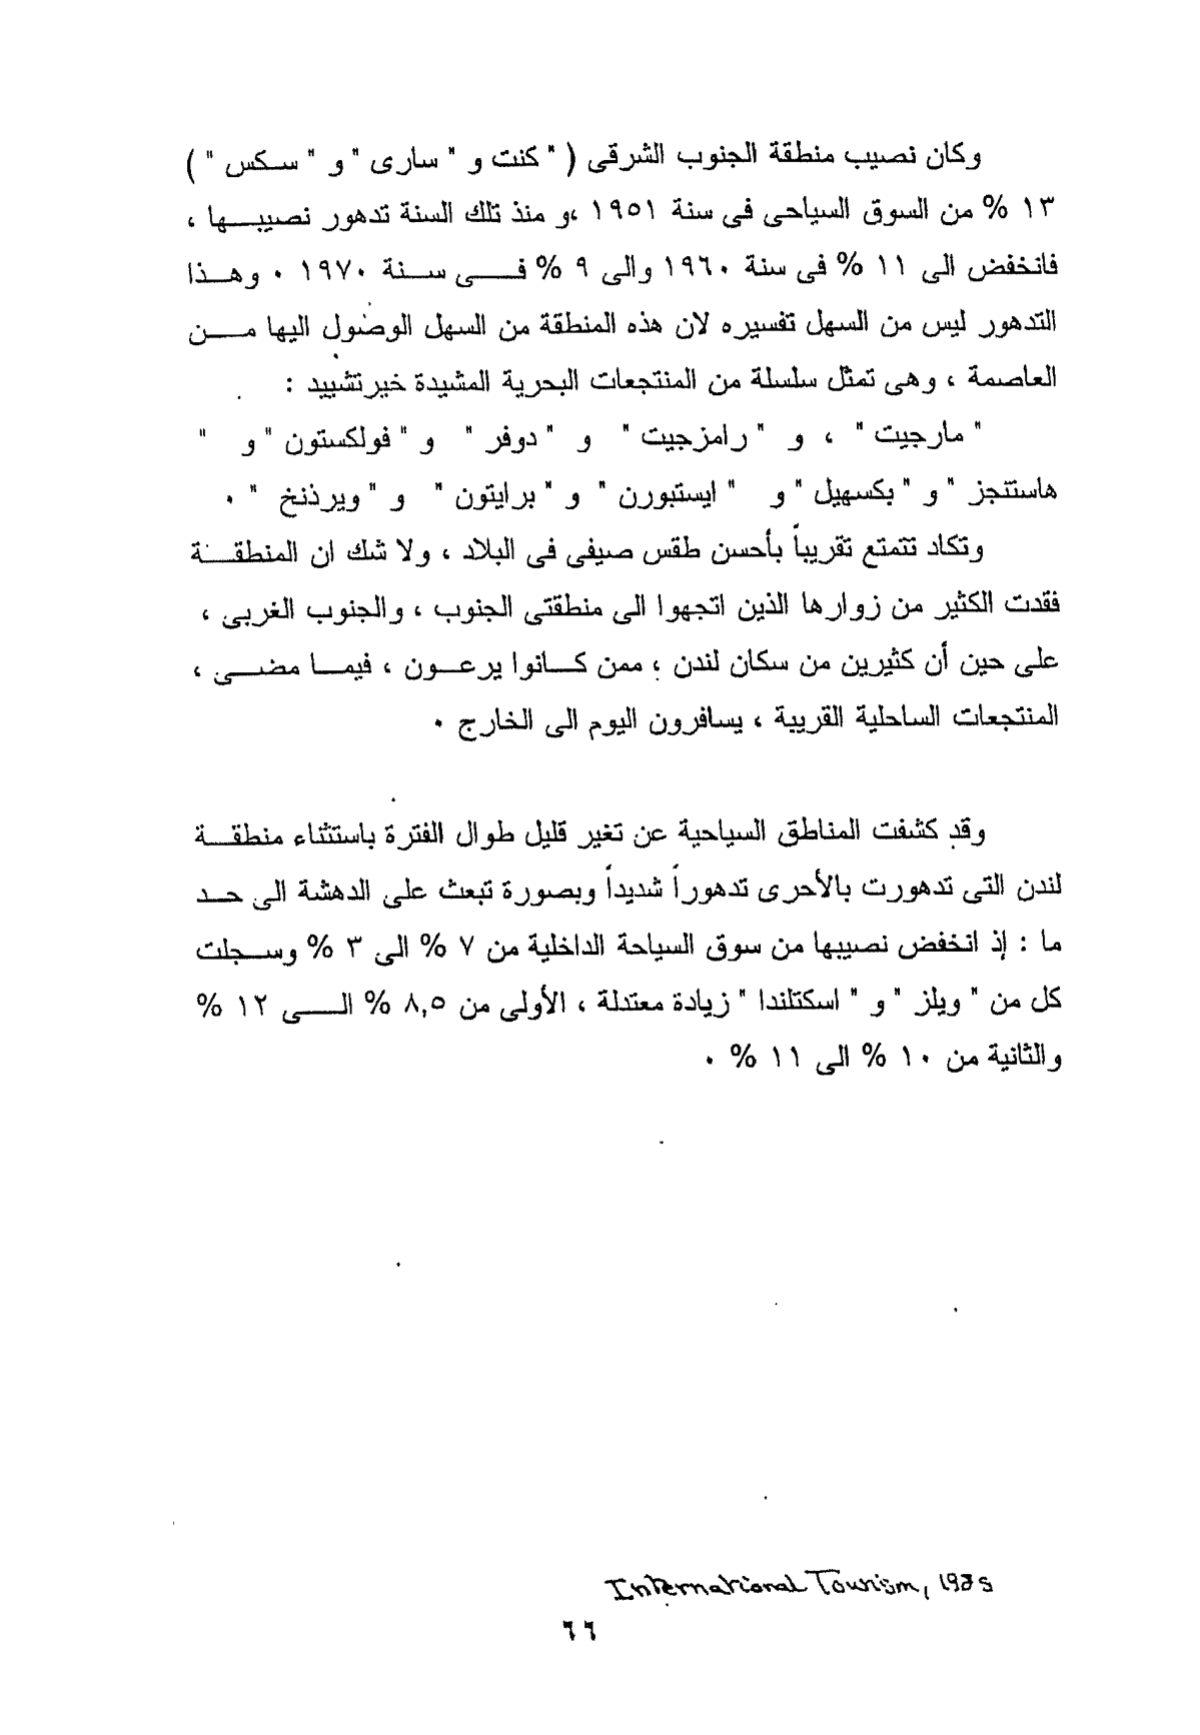 وكان نصيب منطقة الجنوب الشرقى ( " كنت و " سارى " و " سكس " )
١٣ % من السوق السياحى فى سنة ١٩٥١ ،و منذ تلك السنة تدهور نصيبها ،
فانخفض الى ١١ % فى سنة ١٩٦٠ والى ٩ % فى سنة ١٩٧٠ . وهذا
التدهور ليس من السهل تفسيره لان هذه المنطقة من السهل الوصول اليها من
العاصمة ، وهى تمثل سلسلة من المنتجعات البحرية المشيدة خيرتشييد :
" مارجيت " ، و " رامزجيت " و " دوفر " و " فولكستون " و "
هاستنجز " و " بكسهيل " و " ايستبورن " و " برايتون " و " ويرذنخ " .
وتكاد تتمتع تقريباً بأحسن طقس صيفى فى البلاد ، ولا شك ان المنطقة
فقدت الكثير من زوارها الذين اتجهوا الى منطقتى الجنوب ، والجنوب الغربى ،
على حين أن كثيرين من سكان لندن ؛ ممن كانوا يرعون ، فيما مضى ،
المنتجعات الساحلية القريبة ، يسافرون اليوم الى الخارج .
وقد كشفت المناطق السياحية عن تغير قليل طوال الفترة باستثناء منطقة
لندن التى تدهورت بالأحرى تدهوراً شديداً وبصورة تبعث على الدهشة الى حد
ما : إذ انخفض نصيبها من سوق السياحة الداخلية من ٧ % الى ٣ % وسجلت
كل من " ويلز " و " اسكتلندا " زيادة معتدلة ، الأولى من ٨,٥ % الى ١٢ %
والثانية من ١٠ % الى ١١ % .
International Tourism,
٦٦